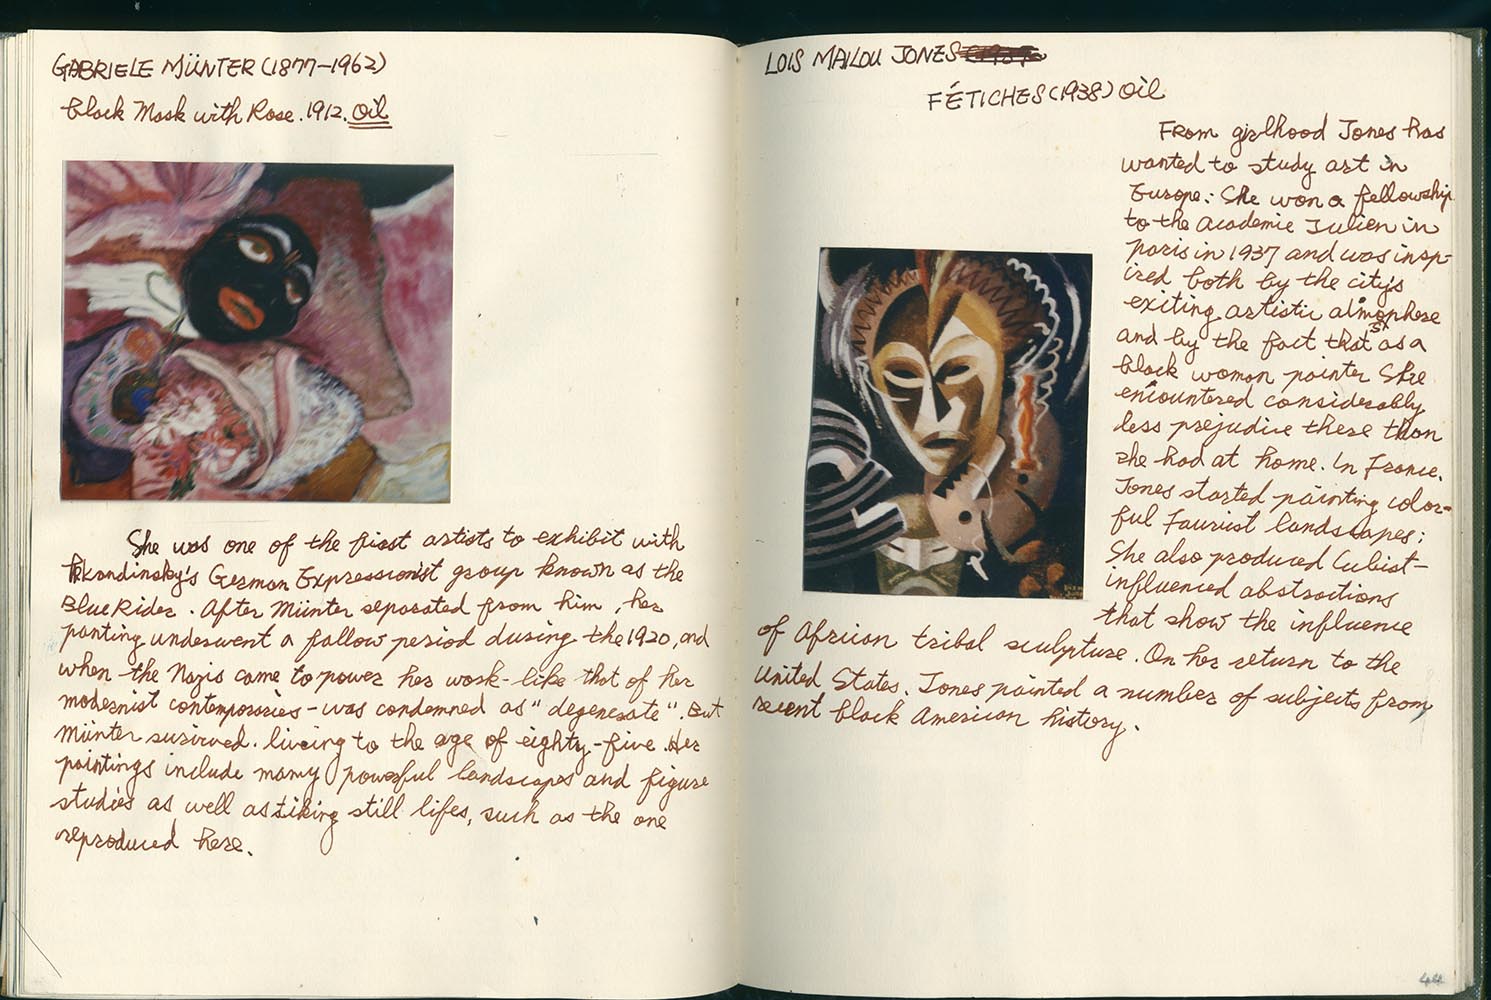 GABRIELE MÜNTER (1877-1962)
black Mask with Rose. 1912. Oil
She was one of the first artists to exhibit with
Kandinsky's German Expressionist group known as the
Blue Rider. After Münter separated from him, her
panting underwent a fallow period during the 1920, and
when the Nazis came to power her work-like that of her
modernist contemporaries-was condemned as "degenerate". But
münter survived. living to the age of eighty-five. Her
paintings include many powerful landscapes and figure
studies as well as stiking still lifes, such as the one
reproduced here.
LOIS MAILOU JONES
FÉTICHES (1938) oil
From girlhood Jones has
wanted to study art in
Europe: She won a fellowship
to the academie Julien in
paris in 1937 and was insp-
ired both by the city's
exiting artistic atmosphere
and by the fact that as a
black woman painter She
encountered considerably
less prejudice there than
she had at home. In France.
Jones started painting color-
ful Fauvist landscapes;
She also produced Cubist-
influenced abstractions
that show the influence
of African tribal sculpture. On her return to the
United States. Jones painted a number of subjects from
recent black American history.
44